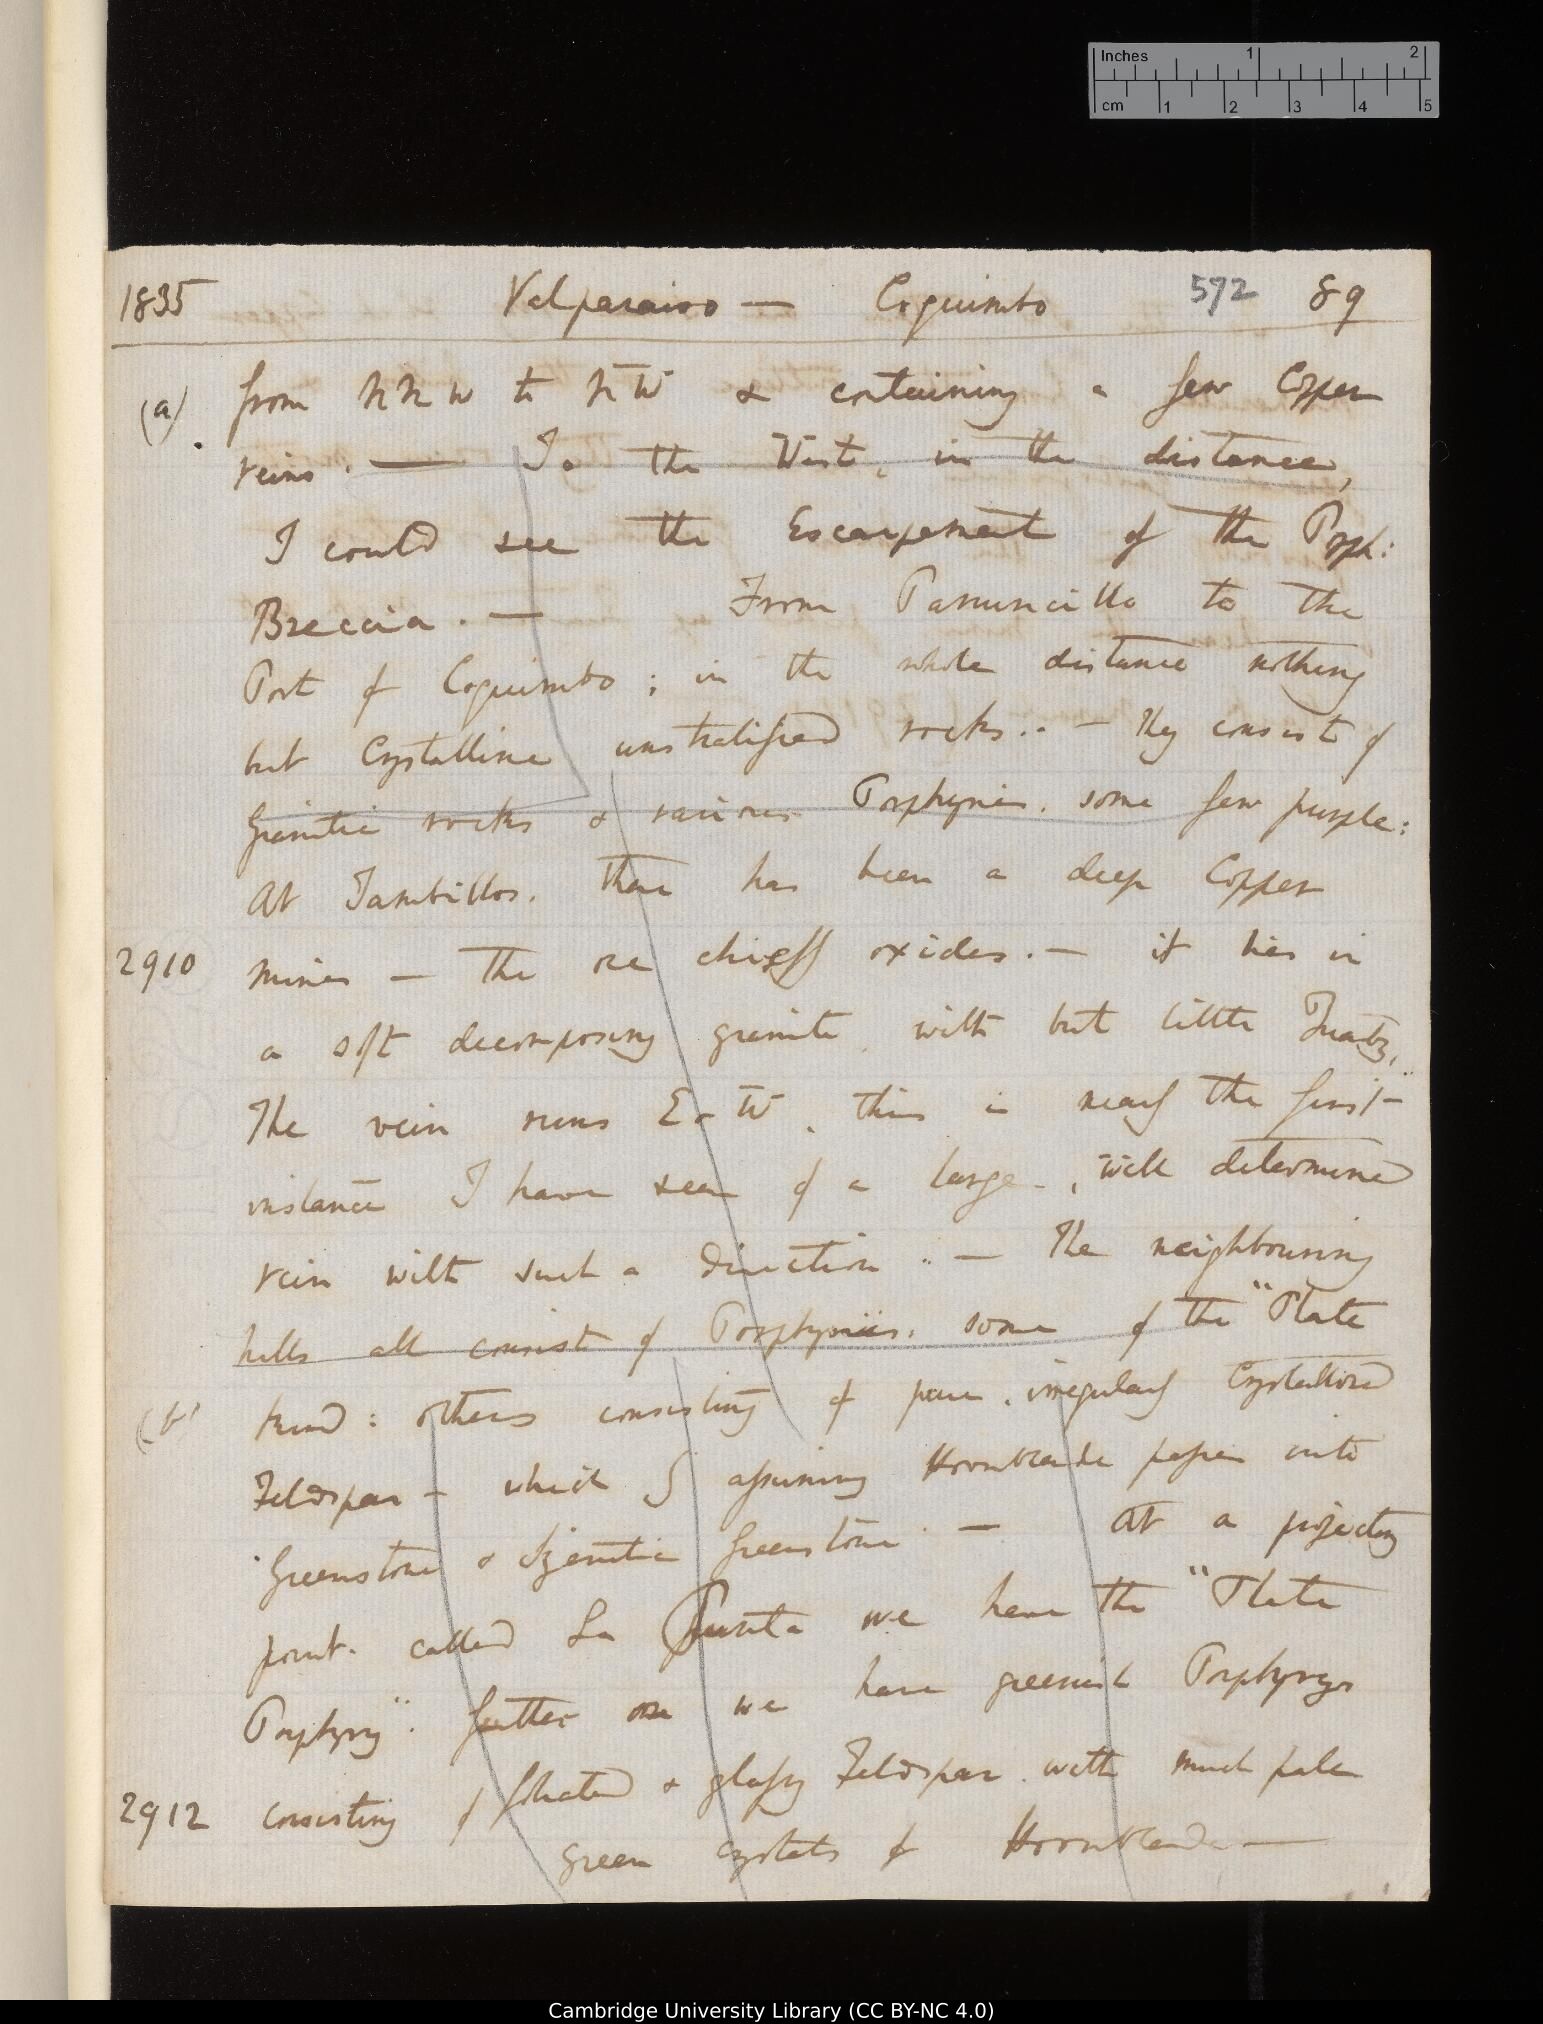 Inches 1 2
cm 1 2 3 4 5
1835 Valparaiso — Coquimbo 572 89
(a) from NNW to NW & containing a few Copper
veins. — To the West, in the distance,
I could see the Escarpement of the Porph:
Breccia. — From Panuncillo to the
Port of Coquimbo; in the whole distance nothing
but Crystalline unstratified rocks.. — They consist of
Granitic rocks & various Porphyries. some few purple:
At Tambillos. there has been a deep Copper
2910 mines — The ore chiefly oxides. — it lies in
a soft decomposing granite with but little Quartz,
The vein runs E & W, this is nearly the first
instance I have seen of a large, well determined
vein with such a direction.. — The neighbouring
hills all consist of Porphyries. some of the "Plata
(b) kind: others consisting of pure, irregularly Crystallized
Feldspar — which by assuming Hornblende passes into
Greenstone & Syenitic Greenstone — At a projecting
point. called La Punta we have the "Plata
Porphyry". further on we have greenish Porphyrys
2912 consisting of foliated & glassy Feldspar. with much pale
green crystals of Hornblende —
Cambridge University Library (CC BY-NC 4.0)